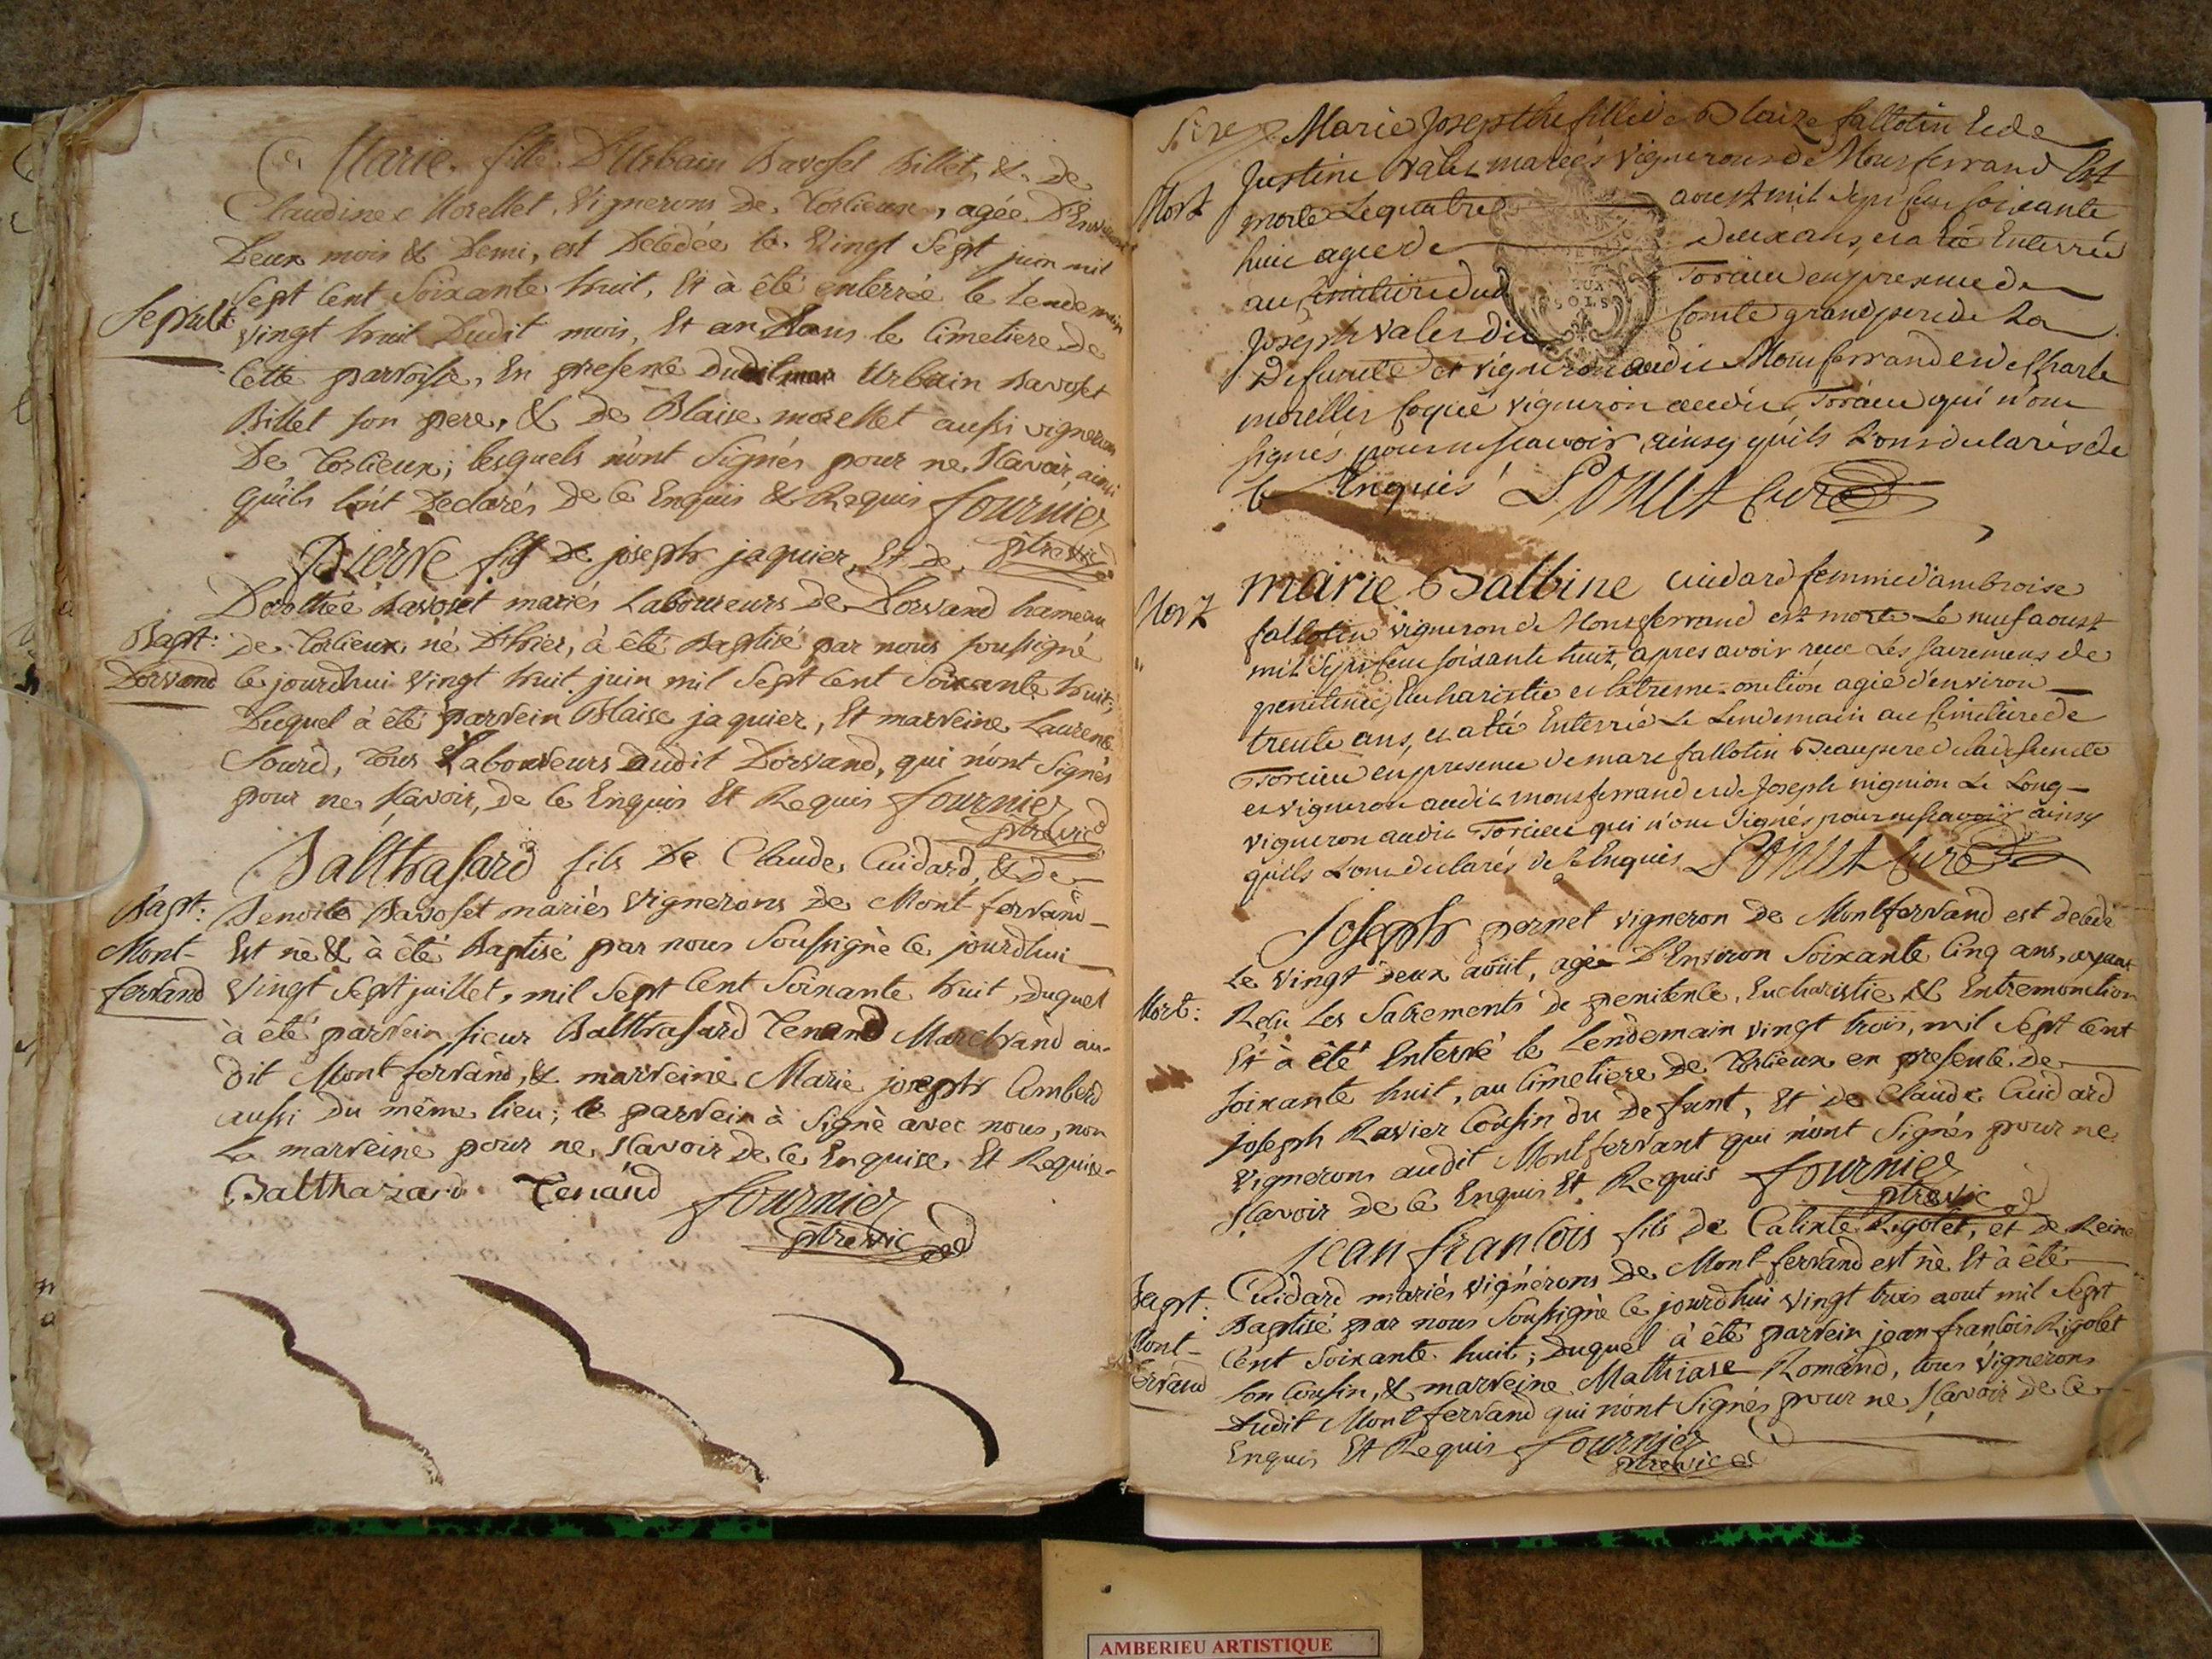 Marie, fille D'Urbain Bavoset billet, & de
Claudine Morellet, Vignerons de Torcieux, agée D'Environ
Deux mois & Demi, est Decedée le Vingt Sept juin mil
Sept Cent Soixante huit, Et à été enterrée le Lendemain
Sepult:
vingt huit Dudit mois, Et an Dans le Cimetiere De
Cette parroisse, En presence Dudit Urbain Bavoset
Billet son pere, & De Blaise morellet aussi vigneron
De Torcieux; lesquels n'ont Signés pour ne Scavoir, ainsi
qu'ils l'ont Declarés De Ce Enquis & Requis fournier
ptre vic
Pierre fils de joseph jaquier, Et De
Dorothée Bavoset mariés Laboureurs De Dorvand hameau
Bapt:
Dorvand
de Torcieux, né D'hier, à été Baptisé par nous soussigné
le jourdhui vingt huit juin mil Sept Cent Soixante huit;
Duquel à été parrein Blaise jaquier, Et marreine Laurence
Sourd, Tous Laboureurs Audit Dorvand, qui n'ont Signés
pour ne Scavoir, de Ce Enquis Et Requis fournier
ptre vic
Balthasard fils De Claude Cuidard, & De
Bapt:
Mont-
ferrand
Benoite Bavoset mariés Vignerons De Mont-ferrand
Est né & à été Baptisé par nous Soussigné Ce jourdhui
Vingt Sept juillet, mil Sept Cent Soixante huit, Duquel
à été parrein sieur Balthasard Tenand Marchand au-
dit Mont ferrand, & marreine Marie joseph Amberd
aussi Du même lieu; le parrein à Signé avec nous, non
La marreine pour ne Scavoir De Ce Enquise Et Requise
Balthazard Tenand fournier
ptre vic
Marie Josepthe fille de Blaize fallotin Et de
Justine Valet mariés vignerons de Monsferrand Est
Mort
morte Le quatre aoust mil Sept Cent soixante
huit agée de deux ans, et a été Enterrée
au Cimitiere dud Torcieu en presence de
Joseph Valet dit Comte grand pere de La
Defunte et vigneron audit Monsferrand et de Charle
morellet Coque vigneron audit Torcieu qui n'ont
signés pour ne scavoir ainsy quils L'ont declarés de
Ce Enquis
Curé
marie Balbine cuidard femme d'ambroise
Mort
fallotin vigneron de Monsferrand est morte Le neuf aoust
mil Sept Cent soixante huit, apres avoir reçu Les sacremens de
penitence, Eucharistie et Extreme-onction, agée d'environ
trente ans, et a été Enterrée Le Lendemain au Cimitiere de
Torcieu en presence de marc fallotin Beaupere de la defuncte
et vigneron audit monsferrand et de Joseph nignion Le Long
vigneron audit Torcieu qui n'ont Signés pour ne scavoir ainsy
quils L'ont declarés de Ce Enquis
Curé
Joseph pernet vigneron De Montferrand est decedé
Le vingt deux août, agé D'Environ Soixante Cinq ans, ayant
Mort:
Reçu Les Sacrements de penitence, Eucharistie & Extremonction
Et à été Enterré le Lendemain vingt trois, mil Sept Cent
Soixante huit, au Cimetiere De Torcieux en presence de
Joseph Ravier Cousin du Defunt, Et de Claude Cuidard
Vignerons audit Montferrant qui n'ont Signés pour ne
Scavoir de Ce Enquis Et Requis fournier
ptre vic
Jean françois fils de Calixte Rigolet, et de Reine
Bapt:
Mont-
ferrand
Cuidard mariés vignerons De Mont-ferrand est né Et à été
Baptisé par nous Soussigné Ce jourdhui vingt trois aout mil Sept
Cent Soixante huit; Duquel à été parrein jean françois Rigolet
son Cousin, & marreine Romand, tous vignerons
Dudit Montferrand qui n'ont Signés pour ne Scavoir de Ce
Enquis Et Requis fournier
ptre vic
SOLS
AMBERIEU ARTISTIQUE